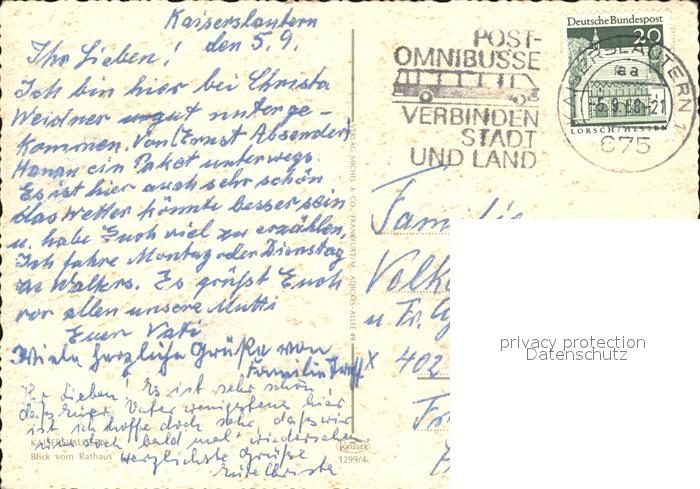 Kaiserslautern
den 5.9.
Ihr Lieben!
Ich bin hier bei Christa
Weidner gut unterge-
kommen. Von Ernst Absender
Hanau ein Paket unterwegs.
Es ist hier auch sehr schön
das Wetter könnte besser sein
u. habe Euch viel zu erzählen,
Ich fahre Montag oder Dienstag
zu Walters. Es grüßt Euch
vor allen unsere Mutti
Euer Vati
Viele herzliche Grüße von
Familie
Ihr Lieben! Es ist sehr schön
daß Euer Vater wenigstens hier
ist ich hoffe doch sehr daß wir
uns doch bald mal wiedersehen
herzlichste Grüße
Eure Christa
KAISERSLAUTERN
Blick vom Rathaus
VERLAG MICHEL & CO., FRANKFURT/M., ADICKES-ALLEE
KRÜGER
1299/4
POST-
OMNIBUSSE
VERBINDEN
STADT
UND LAND
Deutsche Bundespost
20
LORSCH/HESSEN
KAISERSLAUTERN 1
aa
-5.9.68-21
675
Familie
Volk
u. Fr.
402
privacy protection
Datenschutz